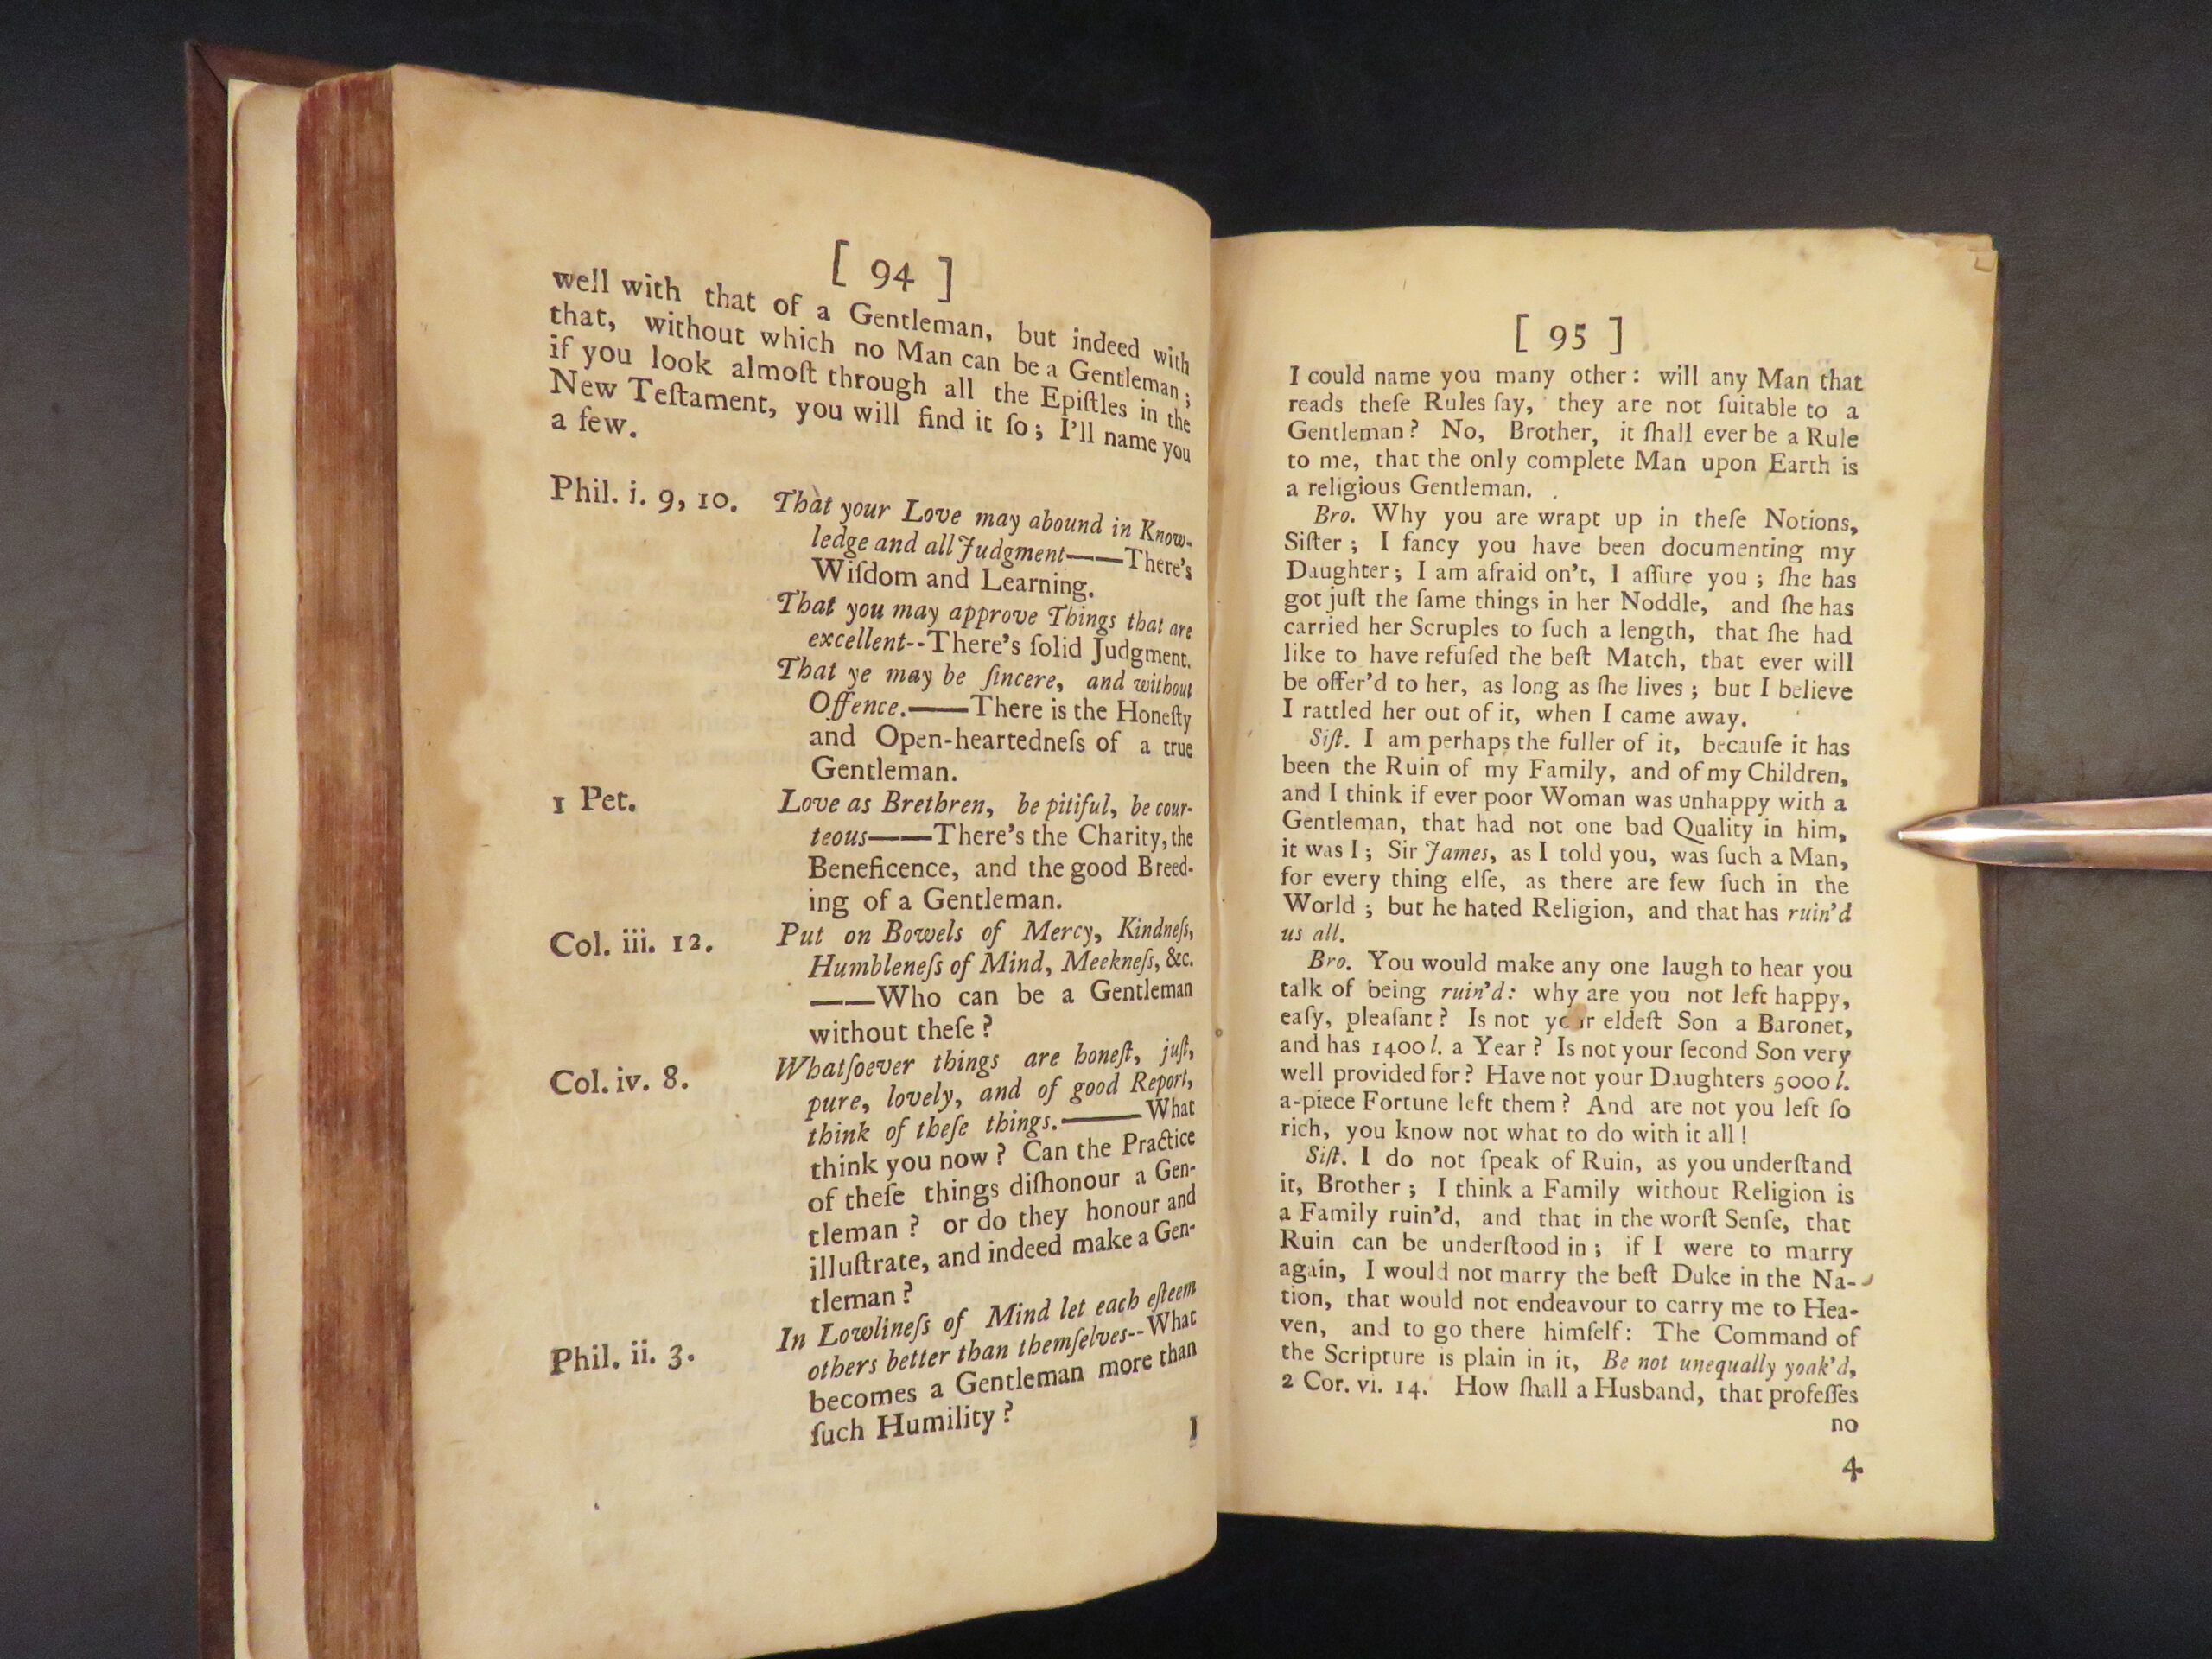 [ 94 ]
well with that of a Gentleman, but indeed with
that, without which no Man can be a Gentleman;
if you look almoſt through all the Epiſtles in the
New Teſtament, you will find it ſo; I'll name you
a few.
Phil. i. 9, 10. That your Love may abound in Know-
ledge and all Judgment——There's
Wiſdom and Learning.
That you may approve Things that are
excellent--There's ſolid Judgment.
That ye may be ſincere, and without
Offence.——There is the Honeſty
and Open-heartedneſs of a true
Gentleman.
1 Pet. Love as Brethren, be pitiful, be cour-
teous——There's the Charity, the
Beneficence, and the good Breed-
ing of a Gentleman.
Col. iii. 12. Put on Bowels of Mercy, Kindneſs,
Humbleneſs of Mind, Meekneſs, &c.
——Who can be a Gentleman
without theſe?
Col. iv. 8. Whatſoever things are honeſt, juſt,
pure, lovely, and of good Report,
think of theſe things.——What
think you now? Can the Practice
of theſe things diſhonour a Gen-
tleman? or do they honour and
illuſtrate, and indeed make a Gen-
tleman?
Phil. ii. 3. In Lowlineſs of Mind let each eſteem
others better than themſelves--What
becomes a Gentleman more than
ſuch Humility?
I
[ 95 ]
I could name you many other: will any Man that
reads theſe Rules ſay, they are not ſuitable to a
Gentleman? No, Brother, it ſhall ever be a Rule
to me, that the only complete Man upon Earth is
a religious Gentleman.
Bro. Why you are wrapt up in theſe Notions,
Siſter; I fancy you have been documenting my
Daughter; I am afraid on't, I aſſure you; ſhe has
got juſt the ſame things in her Noddle, and ſhe has
carried her Scruples to ſuch a length, that ſhe had
like to have refuſed the beſt Match, that ever will
be offer'd to her, as long as ſhe lives; but I believe
I rattled her out of it, when I came away.
Siſt. I am perhaps the fuller of it, becauſe it has
been the Ruin of my Family, and of my Children,
and I think if ever poor Woman was unhappy with a
Gentleman, that had not one bad Quality in him,
it was I; Sir James, as I told you, was ſuch a Man,
for every thing elſe, as there are few ſuch in the
World; but he hated Religion, and that has ruin'd
us all.
Bro. You would make any one laugh to hear you
talk of being ruin'd: why are you not left happy,
eaſy, pleaſant? Is not your eldeſt Son a Baronet,
and has 1400 l. a Year? Is not your ſecond Son very
well provided for? Have not your Daughters 5000 l.
a-piece Fortune left them? And are not you left ſo
rich, you know not what to do with it all!
Siſt. I do not ſpeak of Ruin, as you underſtand
it, Brother; I think a Family without Religion is
a Family ruin'd, and that in the worſt Senſe, that
Ruin can be underſtood in; if I were to marry
again, I would not marry the beſt Duke in the Na-
tion, that would not endeavour to carry me to Hea-
ven, and to go there himſelf: The Command of
the Scripture is plain in it, Be not unequally yoak'd,
2 Cor. vi. 14. How ſhall a Husband, that profeſſes
no
4